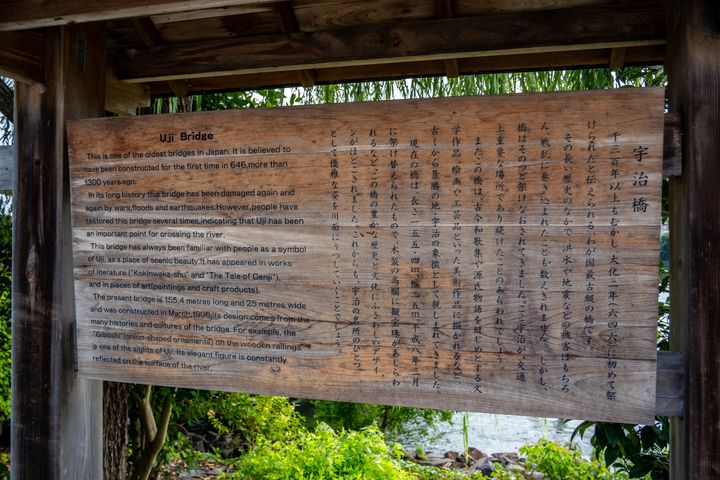 Uji Bridge
This is one of the oldest bridges in Japan. It is believed to
have been constructed for the first time in 646,more than
1300 years ago.
In its long history this bridge has been damaged again and
again by wars,floods and earthquakes.However,people have
restored this bridge several times,indicating that Uji has been
an important point for crossing the river.
This bridge has always been familiar with people as a symbol
of Uji, as a place of scenic beauty.It has appeared in works
of literature ("Kokinwaka-shu" and "The Tale of Genji"),
and in pieces of art(paintings and craft products).
The present bridge is 155.4 metres long and 25 metres wide
and was constructed in March,1996,its design comes from the
many histories and cultures of the bridge. For example, the
"Giboshi"(onion-shaped ornaments) on the wooden railings
is one of the sights of Uji. Its elegant figure is constantly
reflected on the surface of the river.
宇治橋
千三百年以上もむかし、大化二年(六四六)に初めて架
けられたと伝えられる、わが国最古級の橋です。
その長い歴史のなかで、洪水や地震などの被害はもちろ
ん、戦乱に巻き込まれたことも数えきれません。しかし、
橋はそのつど架けなおされてきました。ここ宇治が、交通
上重要な場所でありつづけたことのあらわれでしょう。
またこの橋は、古今和歌集や源氏物語をはじめとする文
学作品、絵画や工芸品といった美術作品に描かれるなど、
古くから景勝の地・宇治の象徴として親しまれてきました。
現在の橋は、長さ一五五・四m、幅二五mで、平成八年三月
に架け替えられたもので、木製の高欄に擬宝珠があしらわ
れるなど、この橋の豊かな歴史と文化にふさわしいデザイ
ンがほどこされました。これからも、宇治の名所のひとつ
として、優雅な姿を川面にうつしていくことでしょう。